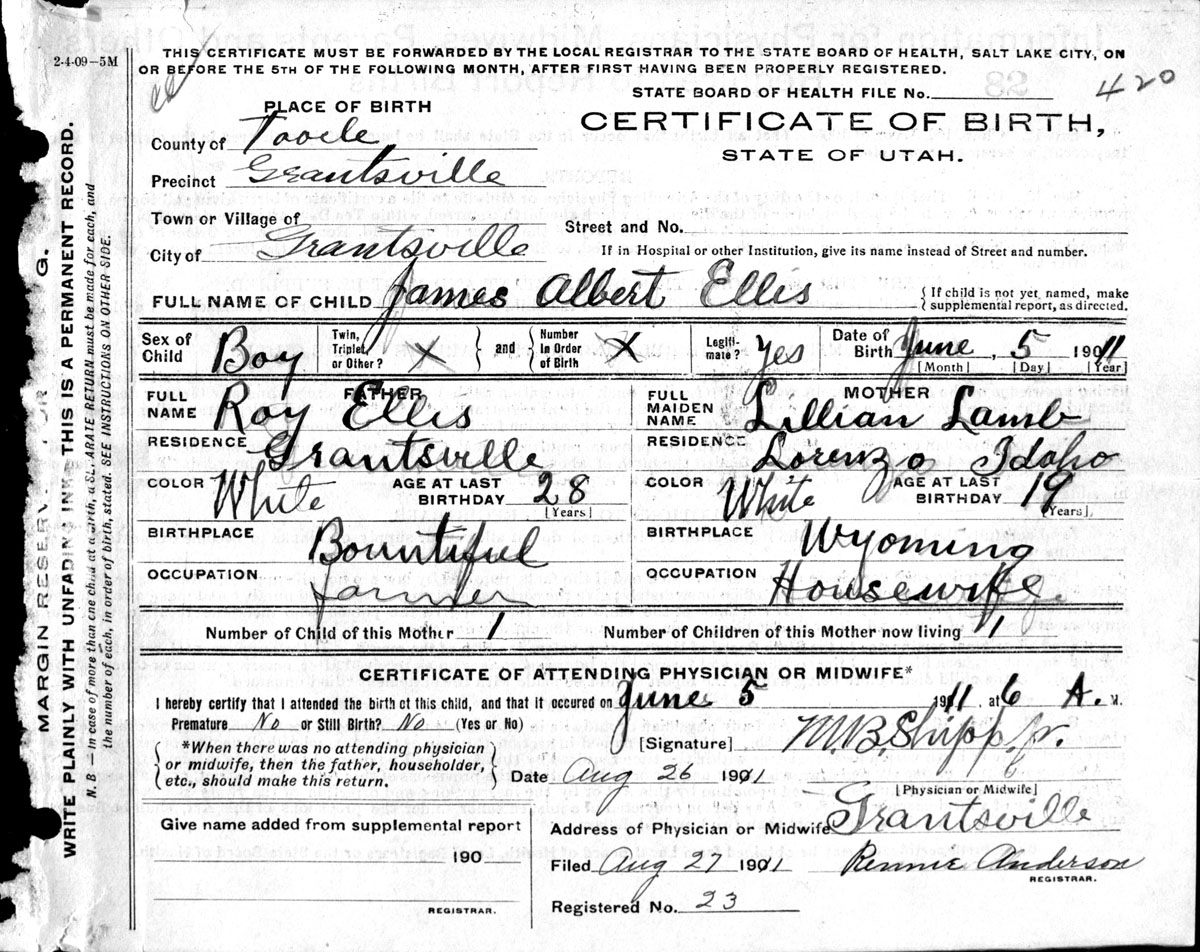 2-4-09—5M
THIS CERTIFICATE MUST BE FORWARDED BY THE LOCAL REGISTRAR TO THE STATE BOARD OF HEALTH, SALT LAKE CITY, ON
OR BEFORE THE 5TH OF THE FOLLOWING MONTH, AFTER FIRST HAVING BEEN PROPERLY REGISTERED.
STATE BOARD OF HEALTH FILE No. 420
PLACE OF BIRTH
CERTIFICATE OF BIRTH,
STATE OF UTAH.
County of Tooele
Precinct Grantsville
Town or Village of
Street and No.
City of Grantsville
If in Hospital or other Institution, give its name instead of Street and number.
FULL NAME OF CHILD James Albert Ellis {If child is not yet named, make supplemental report, as directed.
Sex of Child Boy Twin, Triplet, or Other? X } and { Number In Order of Birth X Legiti-mate? Yes Date of Birth June, 5 1911
[Month] [Day] [Year]
FATHER
MOTHER
FULL NAME Roy Ellis
FULL MAIDEN NAME Lillian Lamb
RESIDENCE Grantsville
RESIDENCE Lorenzo Idaho
COLOR White AGE AT LAST BIRTHDAY 28 [Years]
COLOR White AGE AT LAST BIRTHDAY 19 [Years]
BIRTHPLACE Bountiful
BIRTHPLACE Wyoming
OCCUPATION farmer
OCCUPATION Housewife.
Number of Child of this Mother 1 Number of Children of this Mother now living 1
CERTIFICATE OF ATTENDING PHYSICIAN OR MIDWIFE*
I hereby certify that I attended the birth of this child, and that it occured on June 5 1911, at 6 A. M.
Premature No or Still Birth? No (Yes or No)
[Signature] M.B. Shipp, Jr.
{*When there was no attending physician
or midwife, then the father, householder,
etc., should make this return.}
Date Aug 26 1901
[Physician or Midwife]
Give name added from supplemental report
190
REGISTRAR.
Address of Physician or Midwife Grantsville
Filed Aug 27 1901 Rennie Anderson
REGISTRAR.
Registered No. 23
MARGIN RESERV G.
WRITE PLAINLY WITH UNFADING INK. THIS IS A PERMANENT RECORD.
N. B.—in case of more than one child at a birth, a SEPARATE RETURN must be made for each, and
the number of each, in order of birth, stated. SEE INSTRUCTIONS ON OTHER SIDE.